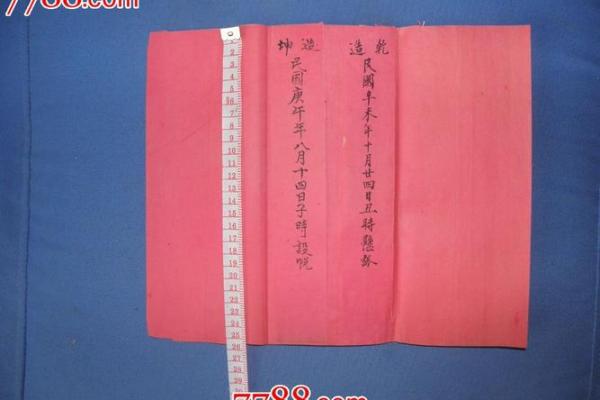 7788.com
乾造
民國辛未年十月廿四日丑時懸弧
坤造
民國庚午年八月十四日子時設帨
7788.com